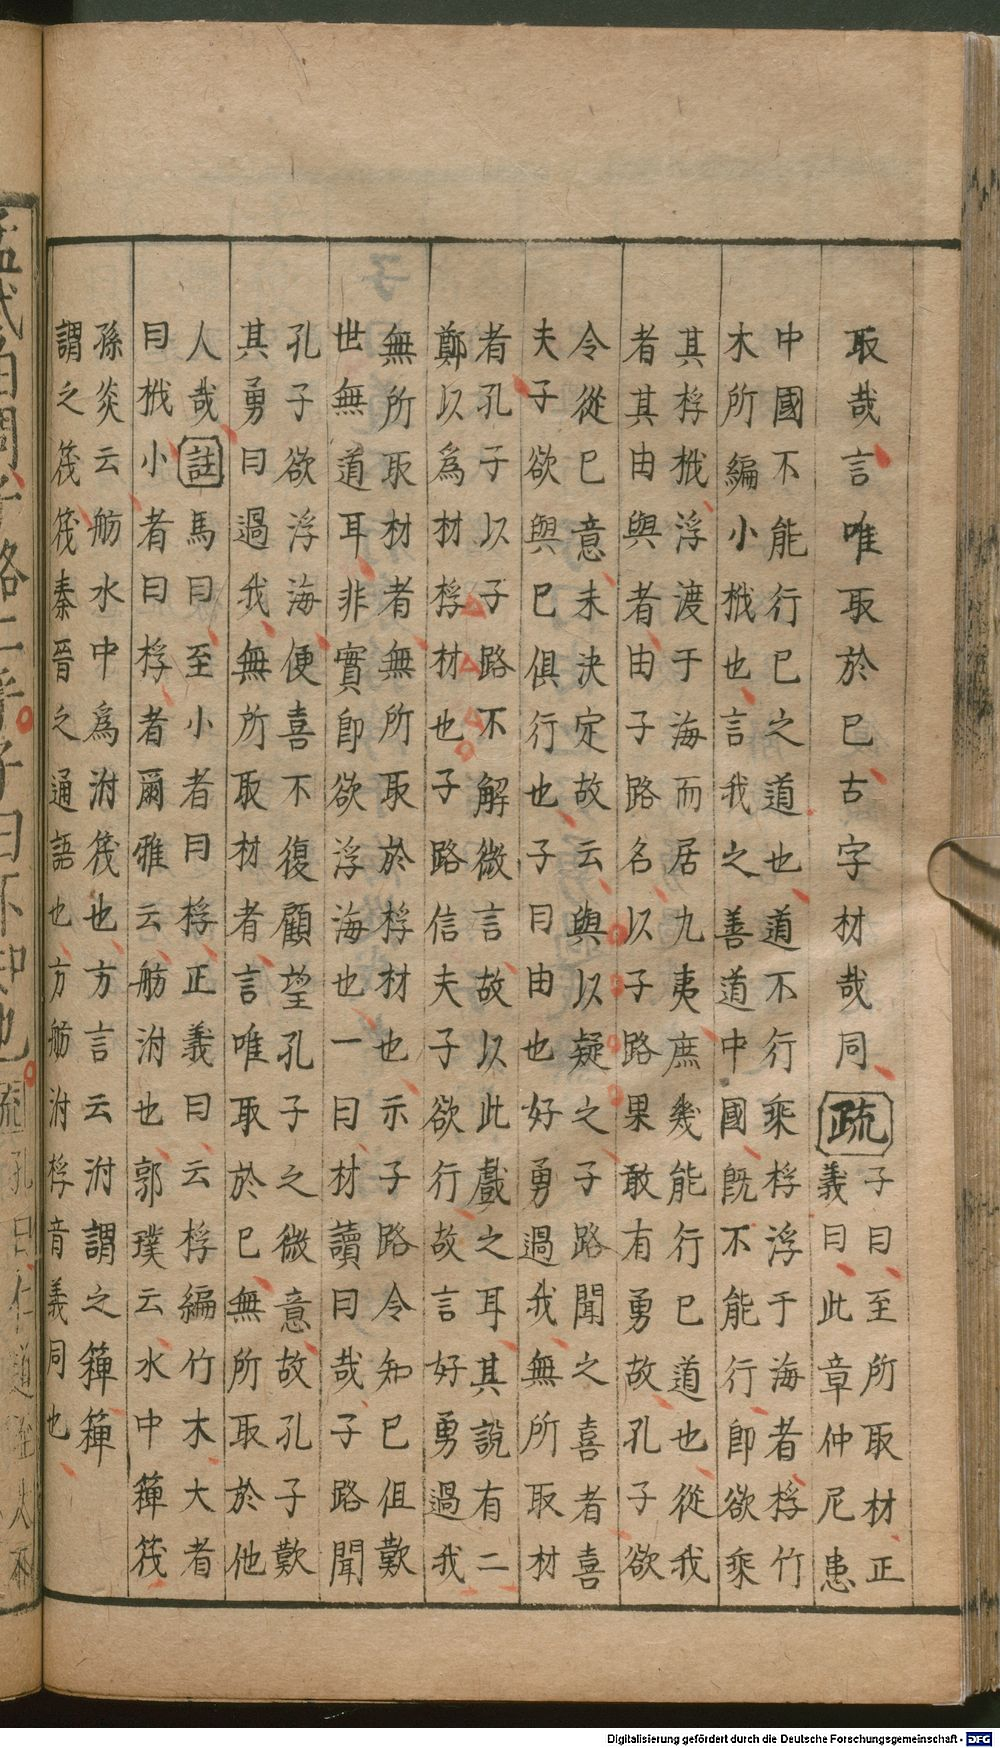 取哉言唯取於已古字材哉同疏
子曰至所取材正
義曰此章仲尼患
中國不能行已之道也道不行乘桴浮于海者桴竹
木所編小栰也言我之善道中國既不能行即欲乘
其桴栰浮渡于海而居九夷庶幾能行已道也從我
者其由與者由子路名以子路果敢有勇故孔子欲
令從已意未決定故云與以疑之子路聞之喜者喜
夫子欲與已俱行也子曰由也好勇過我無所取材
者孔子以子路不解微言故以此戲之耳其說有二
鄭以為材桴材也子路信夫子欲行故言好勇過我
無所取材者無所取於桴材也示子路令知已但歎
世無道耳非實即欲浮海也一曰材讀曰哉子路聞
孔子欲浮海便喜不復顧望孔子之微意故孔子歎
其勇曰過我無所取材者言唯取於已無所取於他
人哉註馬曰至小者曰桴正義曰云桴編竹木大者
曰栰小者曰桴者爾雅云舫泭也郭璞云水中䉬筏
孫炎云舫水中為泭筏也方言云泭謂之䉬䉬
謂之筏筏秦晉之通語也方舫泭桴音義同也
孟武伯問子路仁乎子曰不知也
孔曰仁道至大不
Digitalisierung gefördert durch die Deutsche Forschungsgemeinschaft - DFG